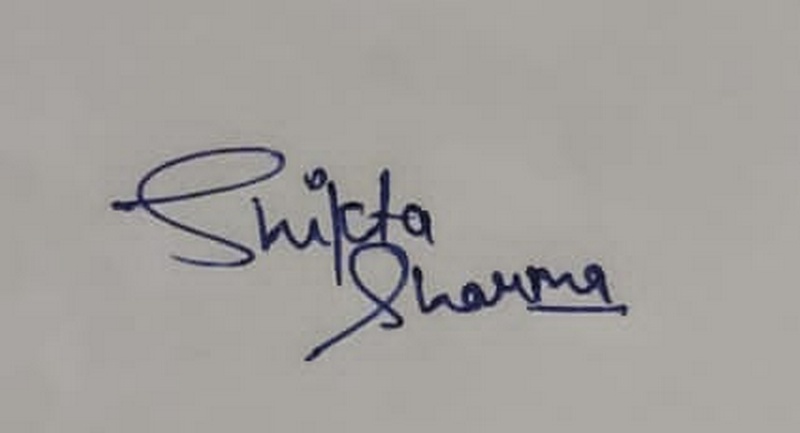 Shikta
Sharma